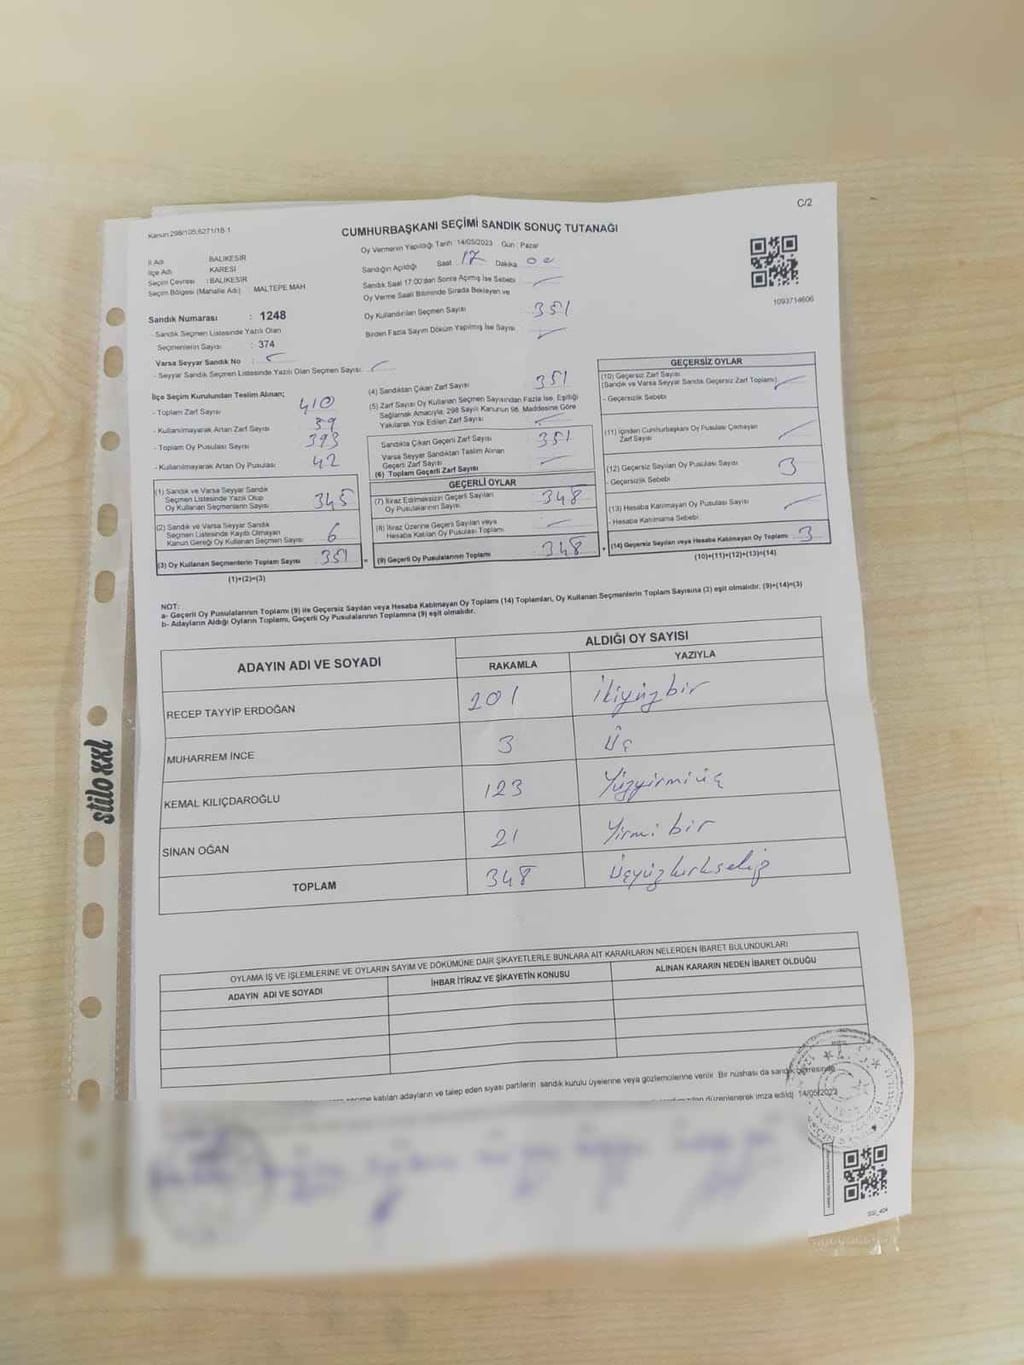 C/2
Kanun:298/105;6271/18-1
CUMHURBAŞKANI SEÇİMİ SANDIK SONUÇ TUTANAĞI
İl Adı BALIKESİR
İlçe Adı KARESİ
Seçim Çevresi : BALIKESİR
Seçim Bölgesi (Mahalle Adı) MALTEPE MAH.
Sandık Numarası : 1248
- Sandık Seçmen Listesinde Yazılı Olan
Seçmenlerin Sayısı : 374
Varsa Seyyar Sandık No :
- Seyyar Sandık Seçmen Listesinde Yazılı Olan Seçmen Sayısı:
Oy Vermenin Yapıldığı Tarih 14/05/2023 Gün : Pazar
Sandığın Açıldığı Saat 17 Dakika 00
Sandık Saat 17:00'dan Sonra Açılmış İse Sebebi
Oy Verme Saati Bitiminde Sırada Bekleyen ve
Oy Kullandırılan Seçmen Sayısı 351
Birden Fazla Sayım Döküm Yapılmış İse Sayısı
1093714606
İlçe Seçim Kurulundan Teslim Alınan;
- Toplam Zarf Sayısı 410
- Kullanılmayarak Artan Zarf Sayısı 59
- Toplam Oy Pusulası Sayısı 393
- Kullanılmayarak Artan Oy Pusulası 42
(1) Sandık ve Varsa Seyyar Sandık
Seçmen Listesinde Yazılı Olup
Oy Kullanan Seçmenlerin Sayısı 345
(2) Sandık ve Varsa Seyyar Sandık
Seçmen Listesinde Kayıtlı Olmayan
Kanun Gereği Oy Kullanan Seçmen Sayısı 6
(3) Oy Kullanan Seçmenlerin Toplam Sayısı 351 =
(1)+(2)=(3)
(4) Sandıktan Çıkan Zarf Sayısı 351
(5) Zarf Sayısı Oy Kullanan Seçmen Sayısından Fazla İse, Eşitliği
Sağlamak Amacıyla; 298 Sayılı Kanunun 98. Maddesine Göre
Yakılarak Yok Edilen Zarf Sayısı
Sandıkta Çıkan Geçerli Zarf Sayısı 351
Varsa Seyyar Sandıktan Teslim Alınan
Geçerli Zarf Sayısı
(6) Toplam Geçerli Zarf Sayısı
GEÇERLİ OYLAR
(7) İtiraz Edilmeksizin Geçerli Sayılan
Oy Pusulalarının Sayısı 348
(8) İtiraz Üzerine Geçerli Sayılan veya
Hesaba Katılan Oy Pusulası Toplamı
(9) Geçerli Oy Pusulalarının Toplamı 348 +
GEÇERSİZ OYLAR
(10) Geçersiz Zarf Sayısı
(Sandık ve Varsa Seyyar Sandık Geçersiz Zarf Toplamı)
- Geçersizlik Sebebi
(11) İçinden Cumhurbaşkanı Oy Pusulası Çıkmayan
Zarf Sayısı
(12) Geçersiz Sayılan Oy Pusulası Sayısı 3
- Geçersizlik Sebebi
(13) Hesaba Katılmayan Oy Pusulası Sayısı
- Hesaba Katılmama Sebebi
(14) Geçersiz Sayılan veya Hesaba Katılmayan Oy Toplamı 3
(10)+(11)+(12)+(13)=(14)
NOT:
a- Geçerli Oy Pusulalarının Toplamı (9) ile Geçersiz Sayılan veya Hesaba Katılmayan Oy Toplamı (14) Toplamları, Oy Kullanan Seçmenlerin Toplam Sayısına (3) eşit olmalıdır. (9)+(14)=(3)
b- Adayların Aldığı Oyların Toplamı, Geçerli Oy Pusulalarının Toplamına (9) eşit olmalıdır.
ADAYIN ADI VE SOYADI ALDIĞI OY SAYISI
RAKAMLA YAZIYLA
RECEP TAYYİP ERDOĞAN 201 ikiyüzbir
MUHARREM İNCE 3 Üç
KEMAL KILIÇDAROĞLU 123 Yüzyirmiüç
SİNAN OĞAN 21 Yirmi bir
TOPLAM 348 Üçyüzkırksekiz
OYLAMA İŞ VE İŞLEMLERİNE VE OYLARIN SAYIM VE DÖKÜMÜNE DAİR ŞİKAYETLERLE BUNLARA AİT KARARLARIN NELERDEN İBARET BULUNDUKLARI
ADAYIN ADI VE SOYADI İHBAR İTİRAZ VE ŞİKAYETİN KONUSU ALINAN KARARIN NEDEN İBARET OLDUĞU
seçime katılan adayların ve talep eden siyasi partilerin sandık kurulu üyelerine veya gözlemcilerine verilir. Bir nüshası da sandık çevresinde
düzenlenerek imza edildi. 14/05/2023
stilo xxl